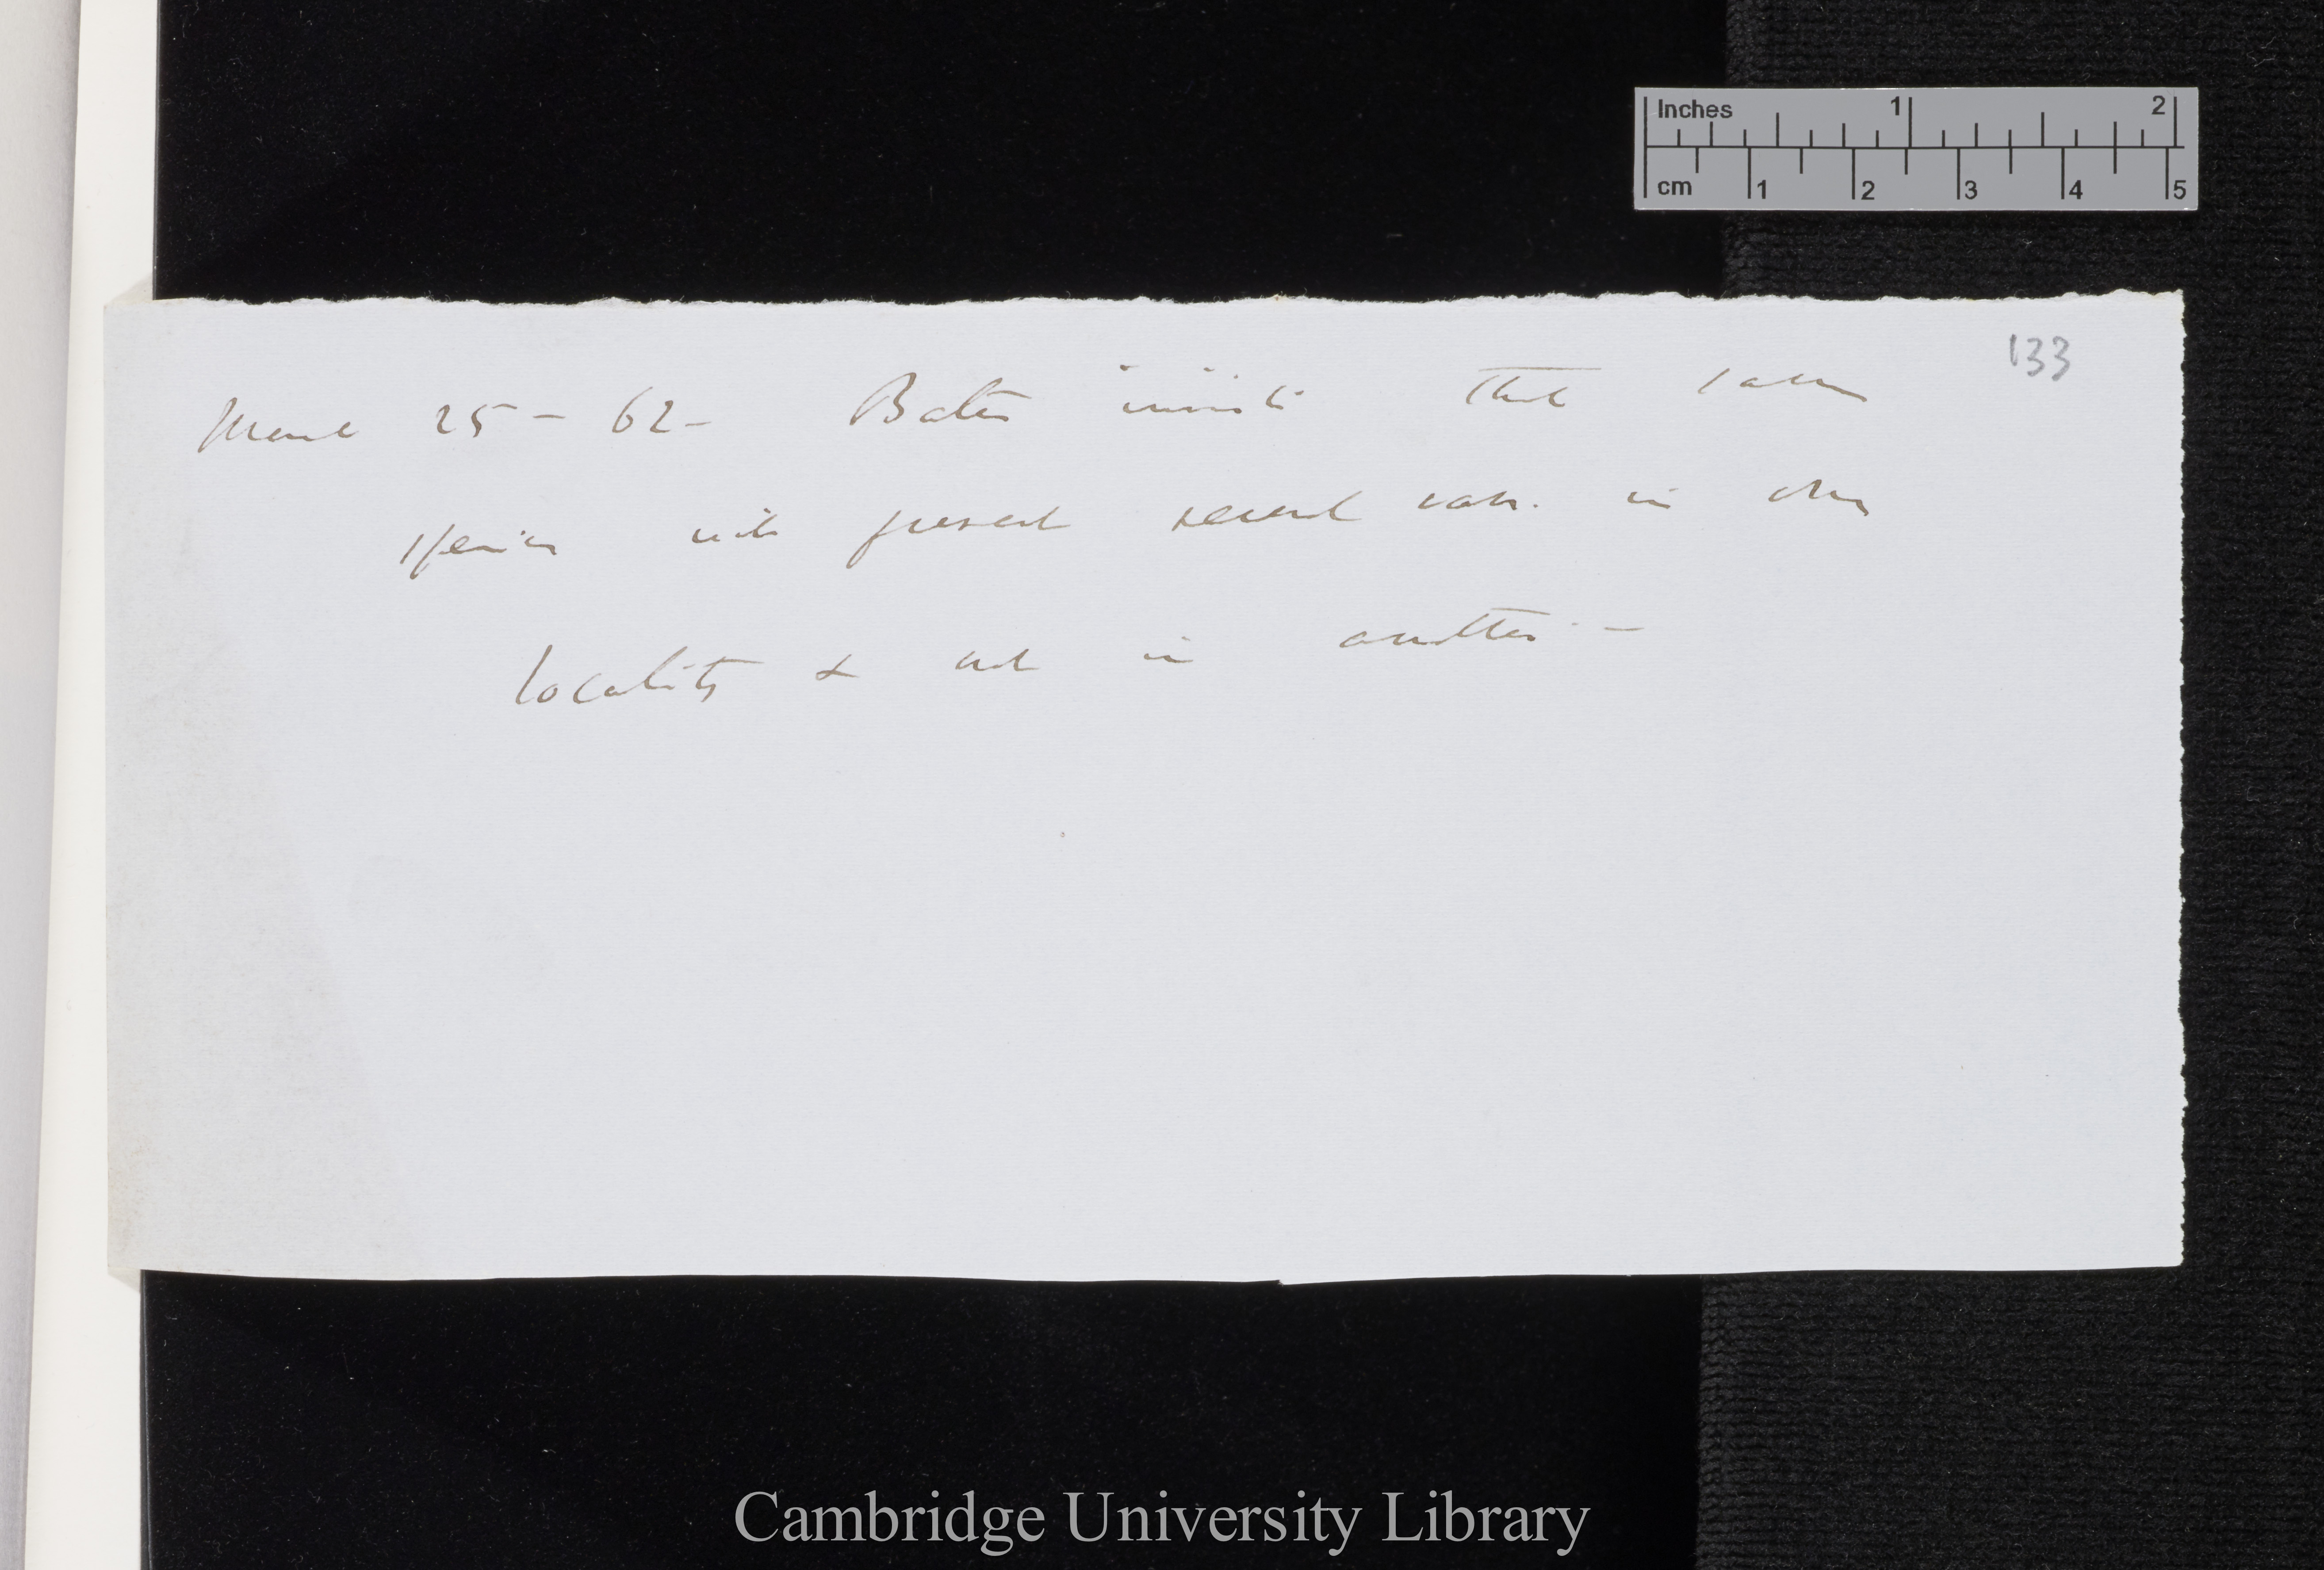 Inches 1 2
cm 1 2 3 4 5
133
March 25 – 62 – Bates insists that same
species will present several vars. in one
locality & not in another. –
Cambridge University Library